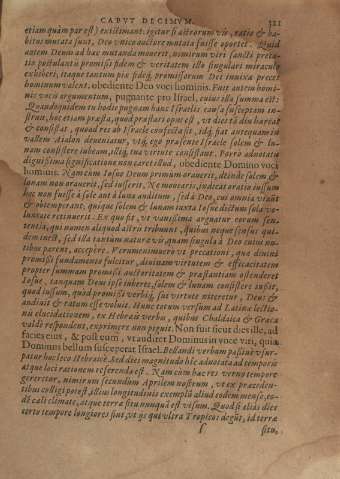 CAPVT DECIMVM. 321
etiam quàm par est) existimant: igitur si astrorum vis, ratio & ha-
bitus mutata sunt, Deo vnico auctore mutata fuisse oportet. Quid
autem Deum ad hæc mutanda mouerit, nimirum viri sancti preca-
tio postulantis promissi fidem & veritatem illo singulari miraculo
exhiberi, itaque tantum piæ fideq; promissorum Dei innixæ precet
hominum valent. obediente Deo voci hominis. Fuit autem homi-
nis vocis argumentum, pugnante pro Israel, cuius illa summa est:
Quandoquidem tu hodie pugnam hanc Israelis causa susceptam in-
struis, hoc etiam præsta, quod præstari opus est, vt dies tã diu hæreat
& consistat, quoad res ab Israele confecta sit, idq; fiat antequam in
vallem Aialon deueniatur, vtq; ego præsente Israele solem & lu-
nam consistere iubeam, illiq; tua virtute consistant. Porrò adnotatio
dignissima significatione non caret illud, obediente Domino voci
hominis. Nam cùm Iosue Deum primùm orauerit, deinde solem &
lunam non orauerit, sed iusserit, Ne moneatis, indicat oratio iussum
hoc non fuisse à sole aut à luna auditum, sed à Deo, cui omnia viuũt
& obtemperant, quique solem & lunam iuxta Iosue dictum sola vo-
luntate retinuerit. Ex quo fit, vt vanissima arguatur eorum sen-
tentia, qui nomen aliquod astris tribuunt, quibus neque sensus qui-
dem inest, sed illa tantum natura vis quam singula à Deo cuius nu-
tibus parent, accepere. Verumenimuero vt precationi, quæ diuini
promissi fundamento fulcitur, diuinam virtutem & efficacitatem
propter summam promissi auctoritatem & præstantiam ostenderet
Iosue, tanquam Deum ipse iuberet, solem & lunam consistere iussit,
quod iussum, quid promissi verbiq; sui virtute niteretur, Deus &
audiuit & ratum esse voluit. Hunc totum versum ad Latinæ lectio-
nis elucidationem, ex Hebrais verbis, quibus Chaldaica & Græca
valdè respondent, exprimere non piguit. Non fuit sicut dies ille, ad
facies eius, & post eum, vt audiret Dominus in voce viri, quia
Dominus bellum susceperat Israel. Bellandi verbum passiuè vsur-
patur hoc loco Hebraicè. Sed diei magnitudo hic adnotata ad temporis
atque loci rationem referenda est. Nam cùm hæc res verno tempore
gereretur, nimirum secundum Aprilem nostrum, vt ex præceden-
tibus colligi potest, illius longitudinis exemplũ aliud eodem mense, eo-
dẽ cæli climate, atque terræ situ nunquã est visum. Quod si aliàs dies
certo tempore longiores sint, vt iis qui vltra Tropicos degũt, id terræ
ſ situ,